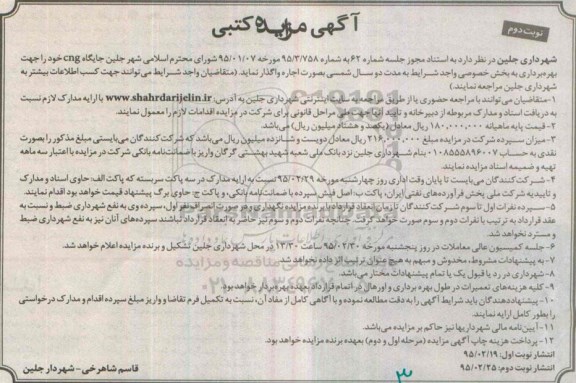 آگهی مزایده کتبی
نوبت دوم
شهرداری جلین در نظر دارد به استناد مجوز جلسه شماره ۶۲ به شماره ۹۵/۳/۷۵۸ مورخه ۹۵/۰۱/۰۷ شورای محترم اسلامی شهر جلین جایگاه cng خود را جهت
بهره‌برداری به بخش خصوصی واجد شرایط به مدت دو سال شمسی بصورت اجاره واگذار نماید. (متقاضیان واجد شرایط می‌توانند جهت کسب اطلاعات بیشتر به
شهرداری جلین مراجعه نمایند.)
۱-متقاضیان می‌توانند با مراجعه حضوری یا از طریق مراجعه به سایت اینترنتی شهرداری جلین به آدرس: www.shahrdarijelin.ir با ارایه مدارک لازم نسبت
به دریافت اسناد و مدارک مربوطه از دبیرخانه و تایید آنها جهت طی مراحل قانونی برای شرکت در مزایده اقدامات لازم را معمول نمایند.
۲- قیمت پایه ماهیانه ۱۸۰،۰۰۰،۰۰۰ ریال معادل (یکصد و هشتاد میلیون ریال) می‌باشد.
۳- میزان سپرده شرکت در مزایده مبلغ ۲۱۶،۰۰۰،۰۰۰ ریال معادل دویست و شانزده میلیون ریال می‌باشد که شرکت‌کنندگان می‌بایستی مبلغ مذکور را بصورت
نقدی به حساب ۰۱۰۸۵۵۵۸۹۶۰۰۷ بنام شهرداری جلین نزد بانک ملی شعبه شهید بهشتی گرگان واریز یا ضمانت‌نامه بانکی شرکت در مزایده با اعتبار سه ماهه
تهیه و ضمیمه اسناد مزایده نمایند.
۴- شرکت کنندگان می‌بایست تا پایان وقت اداری روز چهارشنبه مورخه ۹۵/۰۲/۲۹ نسبت به ارایه مدارک در سه پاکت سربسته که پاکت الف: حاوی اسناد و مدارک
و تاییدیه شرکت ملی پخش فرآورده‌های نفتی ایران، پاکت ب: اصل فیش سپرده یا ضمانت‌نامه بانکی، و پاکت ج حاوی برگ پیشنهاد قیمت خواهد بود اقدام نمایند.
۵- سپرده نفرات اول تا سوم شرکت کنندگان تا زمان انعقاد قرارداد با برنده مزایده نگهداری و در صورت انصراف نفر اول، سپرده وی به نفع شهرداری ضبط و نسبت به
عقد قرارداد به ترتیب با نفرات دوم و سوم صورت خواهد گرفت. چنانچه نفرات دوم و سوم نیز حاضر به انعقاد قرارداد نباشند سپرده‌های آنان نیز به نفع شهرداری ضبط
و مسترد نخواهد شد.
۶- جلسه کمیسیون عالی معاملات در روز پنجشنبه مورخه ۹۵/۰۲/۳۰ ساعت ۱۳/۳۰ در محل شهرداری جلین تشکیل و برنده مزایده اعلام خواهد شد.
۷- به پیشنهادات مشروط، مخدوش و مبهم به هیچ عنوان ترتیب اثر داده نخواهد شد.
۸- شهرداری در رد یا قبول یک یا تمام پیشنهادات مختار می‌باشد.
۹- کلیه هزینه‌های تعمیرات در طول بهره برداری و اورهال در اتمام قرارداد بعهده بهره‌بردار خواهد بود.
۱۰- پیشنهاددهندگان باید شرایط آگهی را به دقت مطالعه نموده و با آگاهی کامل از مفاد آن، نسبت به تکمیل فرم تقاضا و واریز مبلغ سپرده اقدام و مدارک درخواستی
را بطور کامل ارایه نمایند.
۱۱- آیین‌نامه مالی شهرداریها نیز حاکم بر مزایده می‌باشد.
۱۲- پرداخت هزینه چاپ آگهی مزایده (مرحله اول و دوم) بعهده برنده مزایده خواهد بود.
انتشار نوبت اول: ۹۵/۰۲/۱۹
انتشار نوبت دوم: ۹۵/۰۲/۲۵
قاسم شاهرخی - شهردار جلین
۳